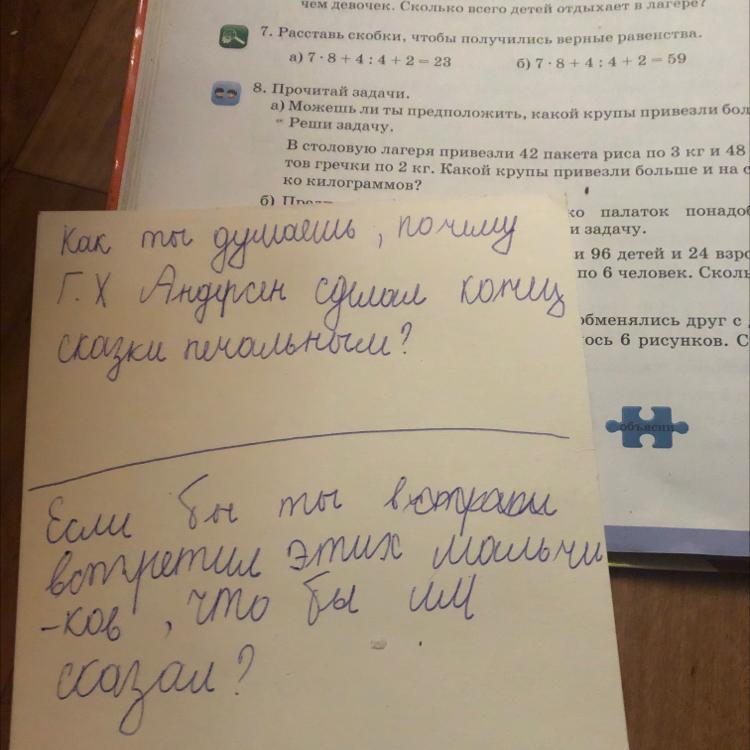 чем девочек. Сколько всего детей отдыхает в лагере?
7. Расставь скобки, чтобы получились верные равенства.
а) 7 · 8 + 4 : 4 + 2 = 23 б) 7 · 8 + 4 : 4 + 2 = 59
8. Прочитай задачи.
а) Можешь ли ты предположить, какой крупы привезли бол
Реши задачу.
В столовую лагеря привезли 42 пакета риса по 3 кг и 48
тов гречки по 2 кг. Какой крупы привезли больше и на с
ко килограммов?
б) ко палаток понадоб
и задачу.
и 96 детей и 24 взро
по 6 человек. Сколь
обменялись друг с
ось 6 рисунков. С
объясни
Как ты думаешь, почему
Г. Х Андерсен сделал конец
сказки печальным?
Если бы ты
встретил этих мальчи
-ков, что бы им
сказал?